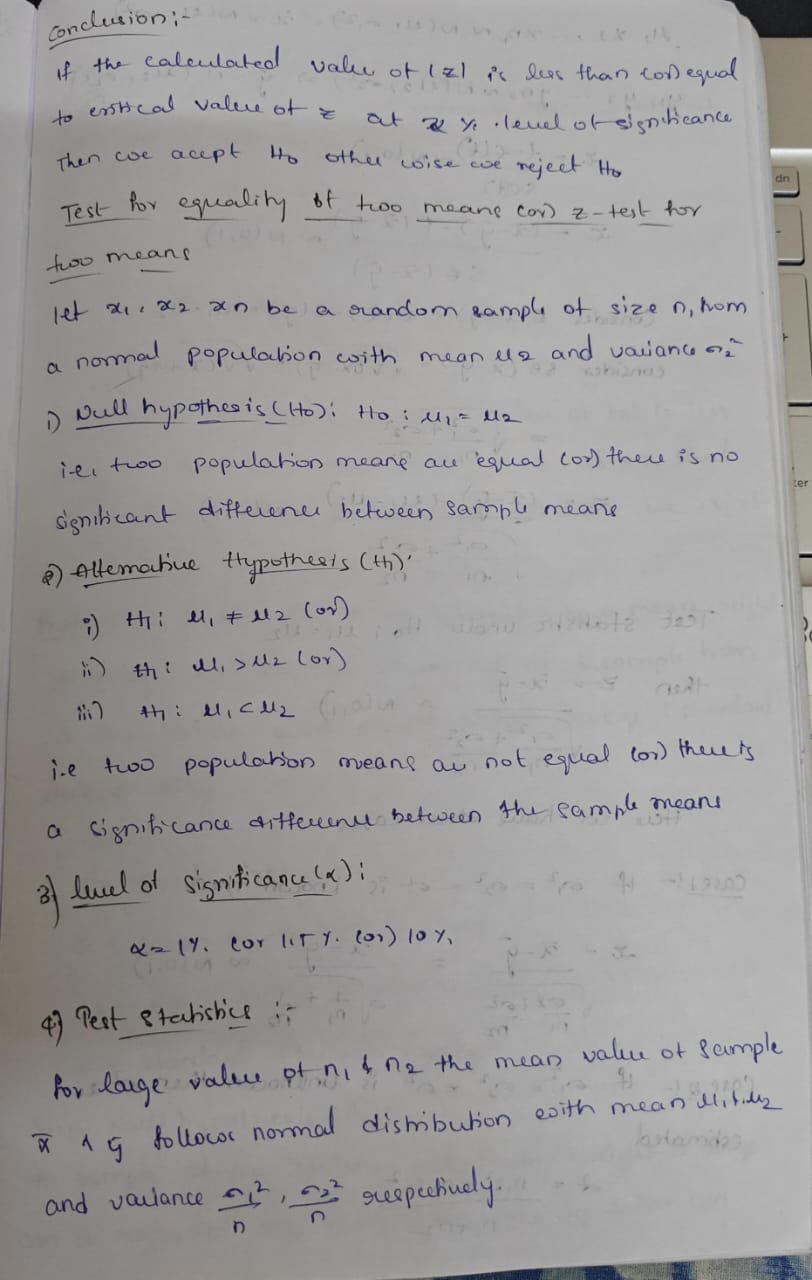 Conclusion :-
if the calculated value of |z| is less than (or) equal
to critical value of z at α %. level of significance
Then we acept H₀ other wise we reject H₀
Test for equality of two means (or) z-test for
two means
let x₁, x₂ xn be a random sample of size n, from
a normal population with mean μ₂ and variance σ₂²
1) Null hypothesis (H₀): H₀ : μ₁ = μ₂
i.e, two population means are equal (or) there is no
significant difference between sample means
2) Alternative Hypothesis (H₁):
i) H₁: μ₁ ≠ μ₂ (or)
ii) H₁ : μ₁ > μ₂ (or)
iii) H₁ : μ₁ < μ₂
i.e two population means are not equal (or) there is
a significance difference between the sample means
3) level of significance (α) :
α = 1%. (or 1.5 %. (or) 10 %.
4) Test Statistics :-
for large value of n₁ & n₂ the mean value of Sample
x̄ & ȳ follows normal distribution with mean μ₁ & μ₂
and variance σ₁²/n , σ₂²/n respectively.